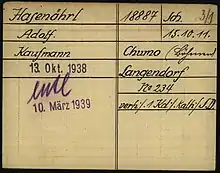 Hasenöhrl 18887 Sch. 3/1
Adolf. 15.10.11.
Kaufmann Chumo (Böhmen)
13. Okt. 1938 Langendorf
entl No 234
10. März 1939 verh./1 Kd./kath./S.D.